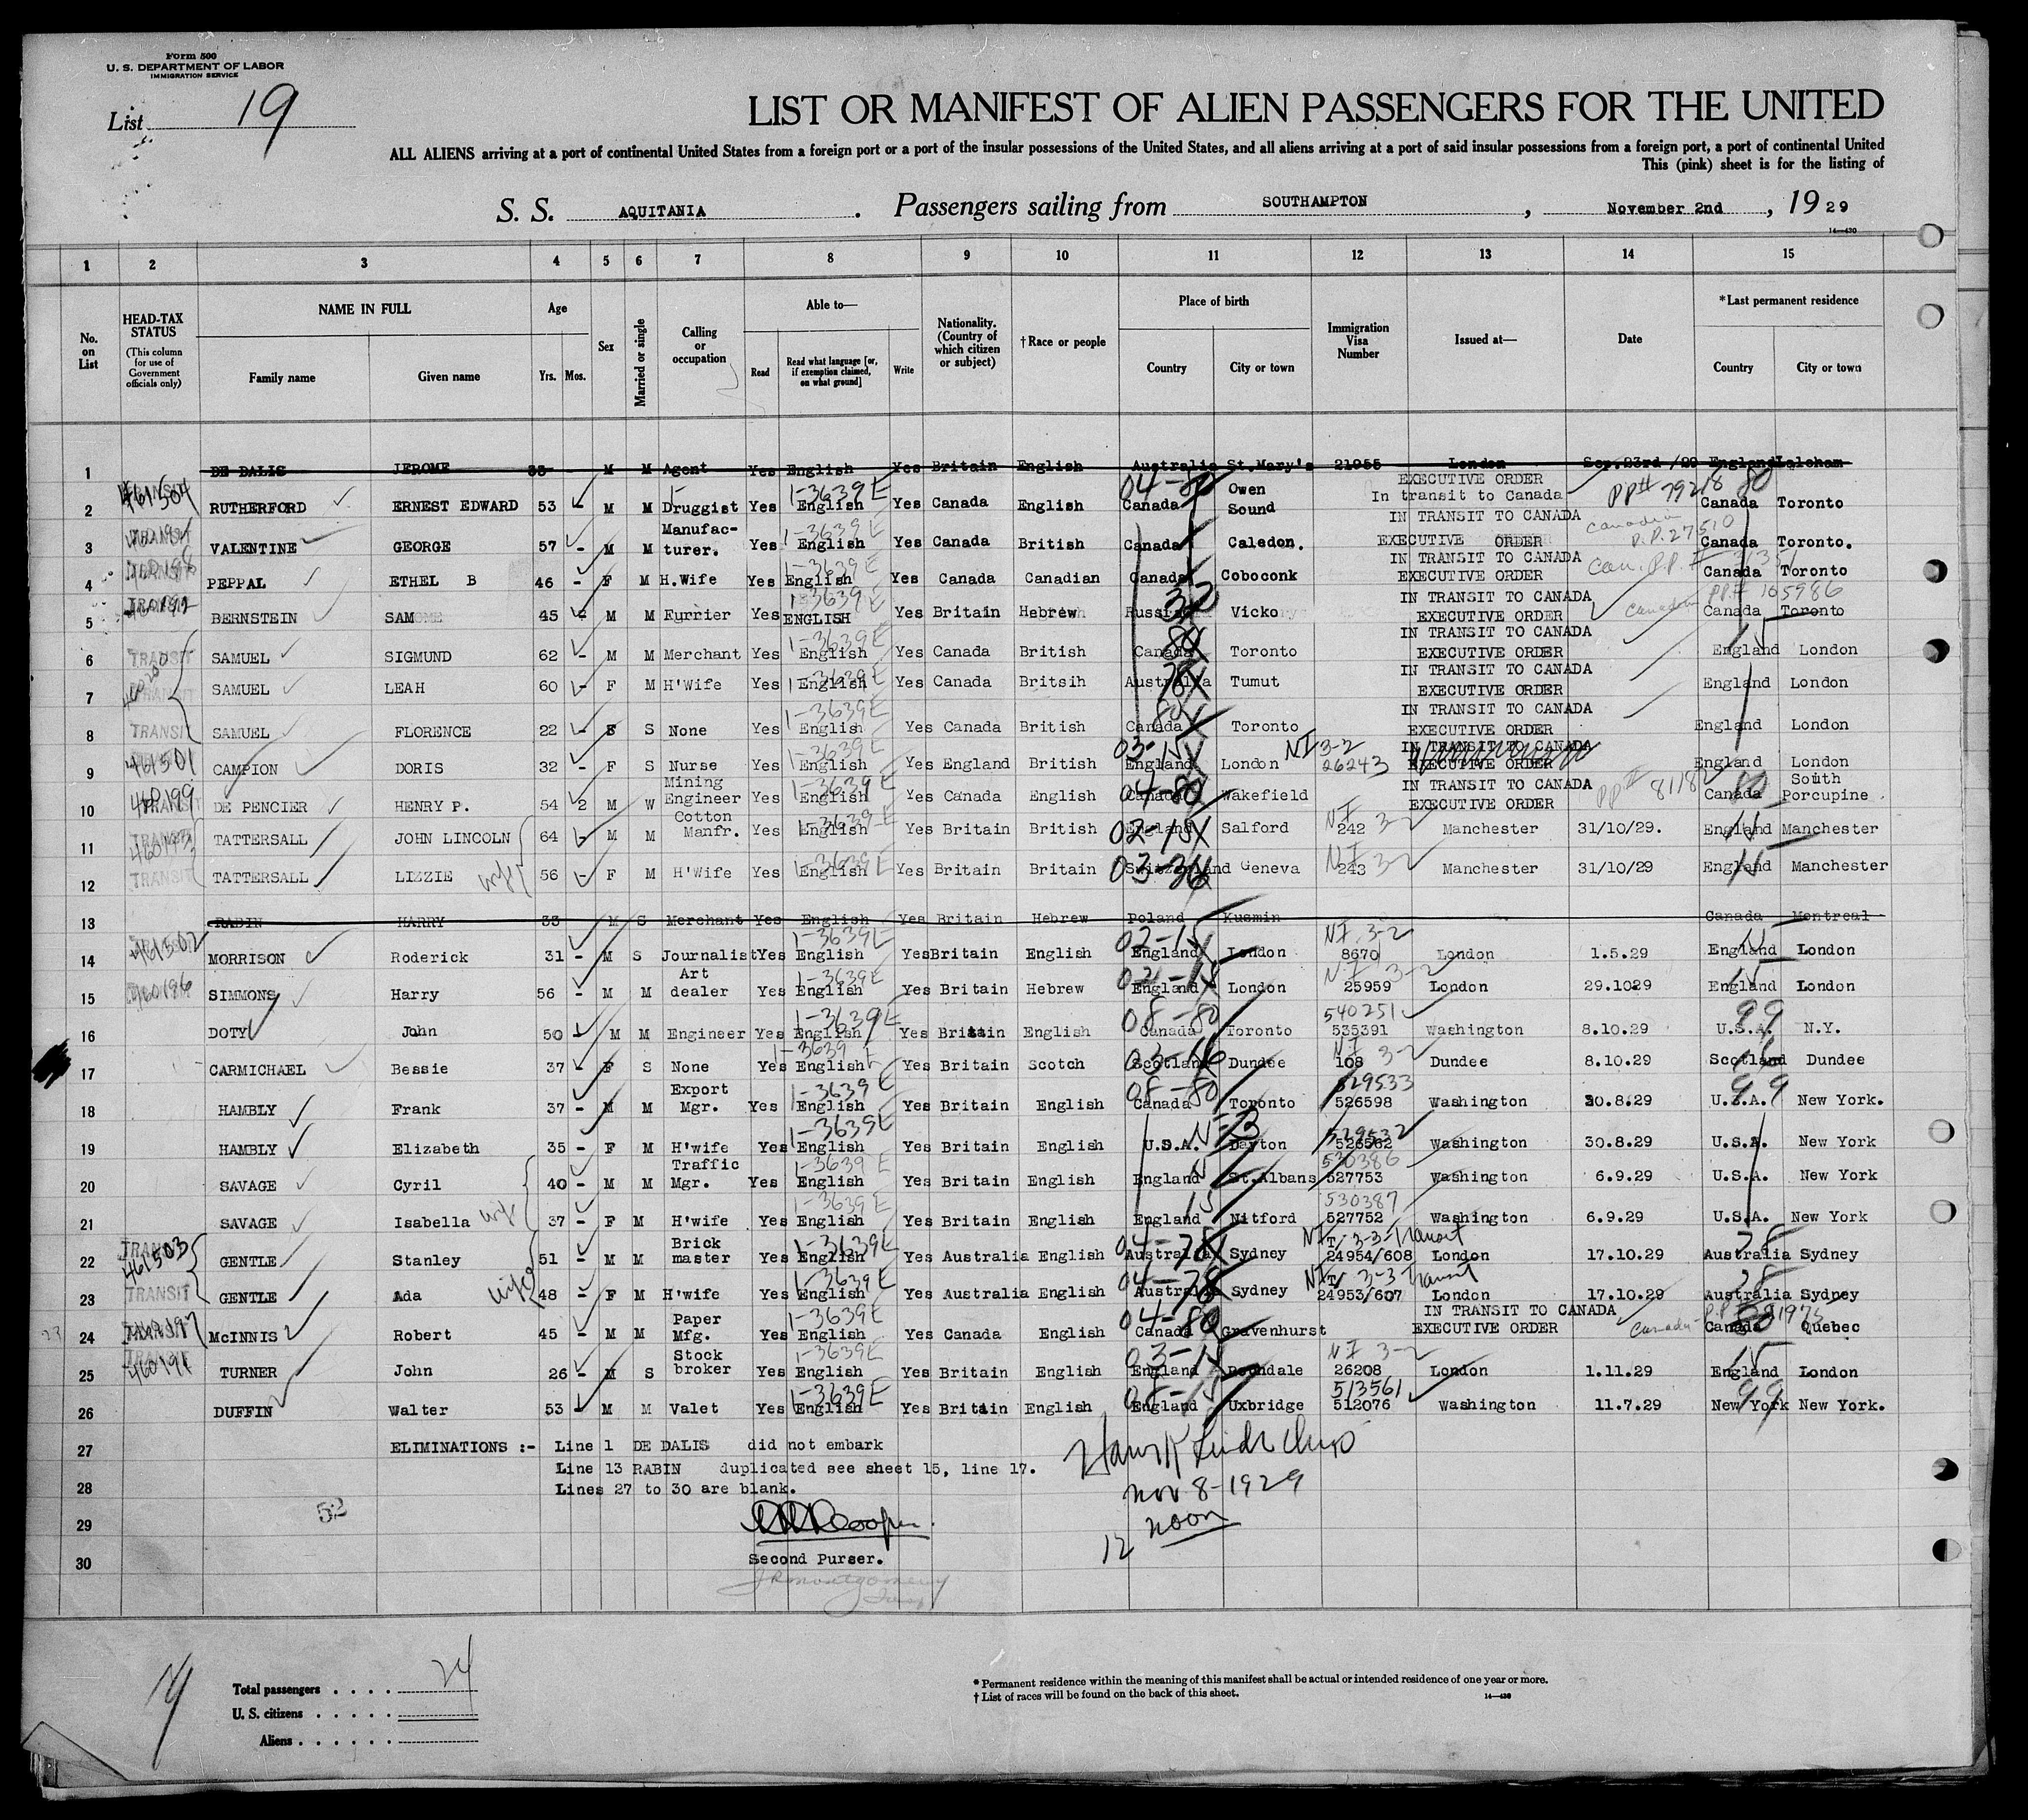 Form 500
U. S. DEPARTMENT OF LABOR
IMMIGRATION SERVICE
List 19
LIST OR MANIFEST OF ALIEN PASSENGERS FOR THE UNITED
ALL ALIENS arriving at a port of continental United States from a foreign port or a port of the insular possessions of the United States, and all aliens arriving at a port of said insular possessions from a foreign port, a port of continental United
This (pink) sheet is for the listing of
S. S. AQUITANIA . Passengers sailing from SOUTHAMPTON , November 2nd , 19 29
14—430
1 2 3 4 5 6 7 8 9 10 11 12 13 14 15
No. on List
HEAD-TAX STATUS (This column for use of Government officials only)
NAME IN FULL Family name Given name
Age Yrs. Mos.
Sex
Married or single
Calling or occupation
Able to— Read Read what language [or, if exemption claimed, on what ground] Write
Nationality. (Country of which citizen or subject)
†Race or people
Place of birth Country City or town
Immigration Visa Number
Issued at—
Date
*Last permanent residence Country City or town
1 DE DALIS JEROME 33 - M M Agent Yes English Yes Britain English Australia St.Mary's 21955 London Sep.23rd /29 England Laleham
2 461504 RUTHERFORD ERNEST EDWARD 53 M M Druggist Yes 1-3639E English Yes Canada English 04-80 Canada Owen Sound EXECUTIVE ORDER In transit to Canada PP# 79218 80 Canada Toronto
3 VALENTINE GEORGE 57 - M M Manufac- turer. Yes 1-3639E English Yes Canada British Canada Caledon. IN TRANSIT TO CANADA EXECUTIVE ORDER Canadian P.P. 27510 Canada Toronto.
4 PEPPAL ETHEL B 46 - F M H.Wife Yes 1-3639E English Yes Canada Canadian Canada Coboconk IN TRANSIT TO CANADA EXECUTIVE ORDER Can. P.P. # Canada Toronto
5 BERNSTEIN SAM 45 - M M Furrier Yes 1-3639E ENGLISH Yes Britain Hebrew Russia Vicko IN TRANSIT TO CANADA EXECUTIVE ORDER Canadian PP# 105986 Canada Toronto
6 TRANSIT SAMUEL SIGMUND 62 - M M Merchant Yes 1-3639E English Yes Canada British 80 Canada Toronto IN TRANSIT TO CANADA EXECUTIVE ORDER 15 England London
7 TRANSIT SAMUEL LEAH 60 - F M H'Wife Yes 1-3639E English Yes Canada Britsih 78 Australia Tumut IN TRANSIT TO CANADA EXECUTIVE ORDER England London
8 TRANSIT SAMUEL FLORENCE 22 - F S None Yes 1-3639E English Yes Canada British 80 Canada Toronto IN TRANSIT TO CANADA EXECUTIVE ORDER England London
9 461501 CAMPION DORIS 32 - F S Nurse Yes 1-3639E English Yes England British 03-15 England London NI 3-2 26243 IN TRANSIT TO CANADA EXECUTIVE ORDER England London
10 460199 DE PENCIER HENRY P. 54 2 M W Mining Engineer Yes 1-3639E English Yes Canada English 04-80 Canada Wakefield IN TRANSIT TO CANADA EXECUTIVE ORDER PP# 81182 80 Canada South Porcupine
11 TRANSIT TATTERSALL JOHN LINCOLN 64 - M M Cotton Manfr. Yes 1-3639E English Yes Britain British 02-15 England Salford NI 3-2 242 Manchester 31/10/29. 15 England Manchester
12 TRANSIT TATTERSALL LIZZIE wife 56 - F M H'Wife Yes 1-3639E English Yes Britain Britain 03-36 Switzerland Geneva NI 3-2 243 Manchester 31/10/29 15 England Manchester
13 RABIN HARRY 33 - M S Merchant Yes English Yes Britain Hebrew Poland Kusmin Canada Montreal
14 461502 MORRISON Roderick 31 - M S Journalist Yes 1-3639E English Yes Britain English 02-15 England London NI 3-2 8670 London 1.5.29 15 England London
15 460196 SIMMONS Harry 56 - M M Art dealer Yes 1-3639E English Yes Britain Hebrew 02-15 England London NI 3-2 25959 London 29.1029 15 England London
16 DOTY John 50 - M M Engineer Yes 1-3639E English Yes Britain English 08-80 Canada Toronto 540251 535391 Washington 8.10.29 99 U.S.A. N.Y.
17 CARMICHAEL Bessie 37 - F S None Yes 1-3639E English Yes Britain Scotch 03-16 Scotland Dundee NI 3-2 108 Dundee 8.10.29 16 Scotland Dundee
18 HAMBLY Frank 37 - M M Export Mgr. Yes 1-3639E English Yes Britain English 08-80 Canada Toronto 529533 526598 Washington 30.8.29 99 U.S.A. New York.
19 HAMBLY Elizabeth 35 - F M H'wife Yes 1-3639E English Yes Britain English U.S.A. Dayton 529532 526562 Washington 30.8.29 U.S.A. New York
20 SAVAGE Cyril 40 - M M Traffic Mgr. Yes 1-3639E English Yes Britain English England St.Albans 530386 527753 Washington 6.9.29 U.S.A. New York
21 SAVAGE Isabella wife 37 - F M H'wife Yes 1-3639E English Yes Britain English 15 England Nitford 530387 527752 Washington 6.9.29 U.S.A. New York
22 TRANSIT 461503 GENTLE Stanley 51 - M M Brick master Yes 1-3639E English Yes Australia English 04-78 Australia Sydney NI 3-3-Transit 24954/608 London 17.10.29 78 Australia Sydney
23 TRANSIT GENTLE Ada wife 48 - F M H'wife Yes 1-3639E English Yes Australia English 04-78 Australia Sydney NI 3-3 Transit 24953/607 London 17.10.29 78 Australia Sydney
24 460197 McINNIS Robert 45 - M M Paper Mfg. Yes 1-3639E English Yes Canada English 04-80 Canada Gravenhurst IN TRANSIT TO CANADA EXECUTIVE ORDER Canadian Canada Quebec
25 TRANSIT 460191 TURNER John 26 - M S Stock broker Yes 1-3639E English Yes Britain English 03-15 England NI 3-2 26208 London 1.11.29 15 England London
26 DUFFIN Walter 53 - M M Valet Yes 1-3639E English Yes Britain English 08-15 England Uxbridge 513561 512076 Washington 11.7.29 99 New York New York.
27 ELIMINATIONS :- Line 1 DE DALIS did not embark
Line 13 RABIN duplicated see sheet 15, line 17.
28 Lines 27 to 30 are blank.
Nov 8-1929
12 noon
52
29 Cooper.
30 Second Purser.
JRMontgomery
19
Total passengers . . . . 24
U. S. citizens . . . . .
Aliens . . . . . .
* Permanent residence within the meaning of this manifest shall be actual or intended residence of one year or more.
† List of races will be found on the back of this sheet.
14—430